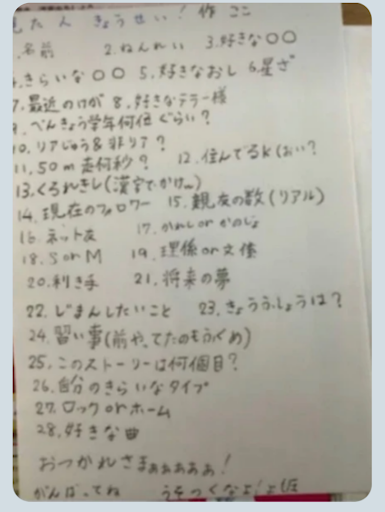 見たん きょうせい! 作 ここ
1.名前 2.ねんれい 3.好きな○○
4.きらいな○○ 5.好きなおし 6.星ざ
7.最近のけが 8.好きなテラー様
9.べんきょう学年何位ぐらい?
10.リアじゅう&非リア?
11.50m走何秒? 12.住んでるk(おい?
13.くろれきし(漢字でかけm)
14.現在のフォロワー 15.親友の数(リアル)
16.ネット友 17.かれしorかのじょ
18.SorM 19.理係or文係
20.利き手 21.将来の夢
22.じまんしたいこと 23.きょうふしょうは?
24.習い事(前やってたのもふくめ)
25.このストーリーは何個目?
26.自分のきらいなタイプ
27.ロックorホーム
28.好きな曲
おつかれさまぁぁぁぁぁ!
がんばってね うそつくなよ!